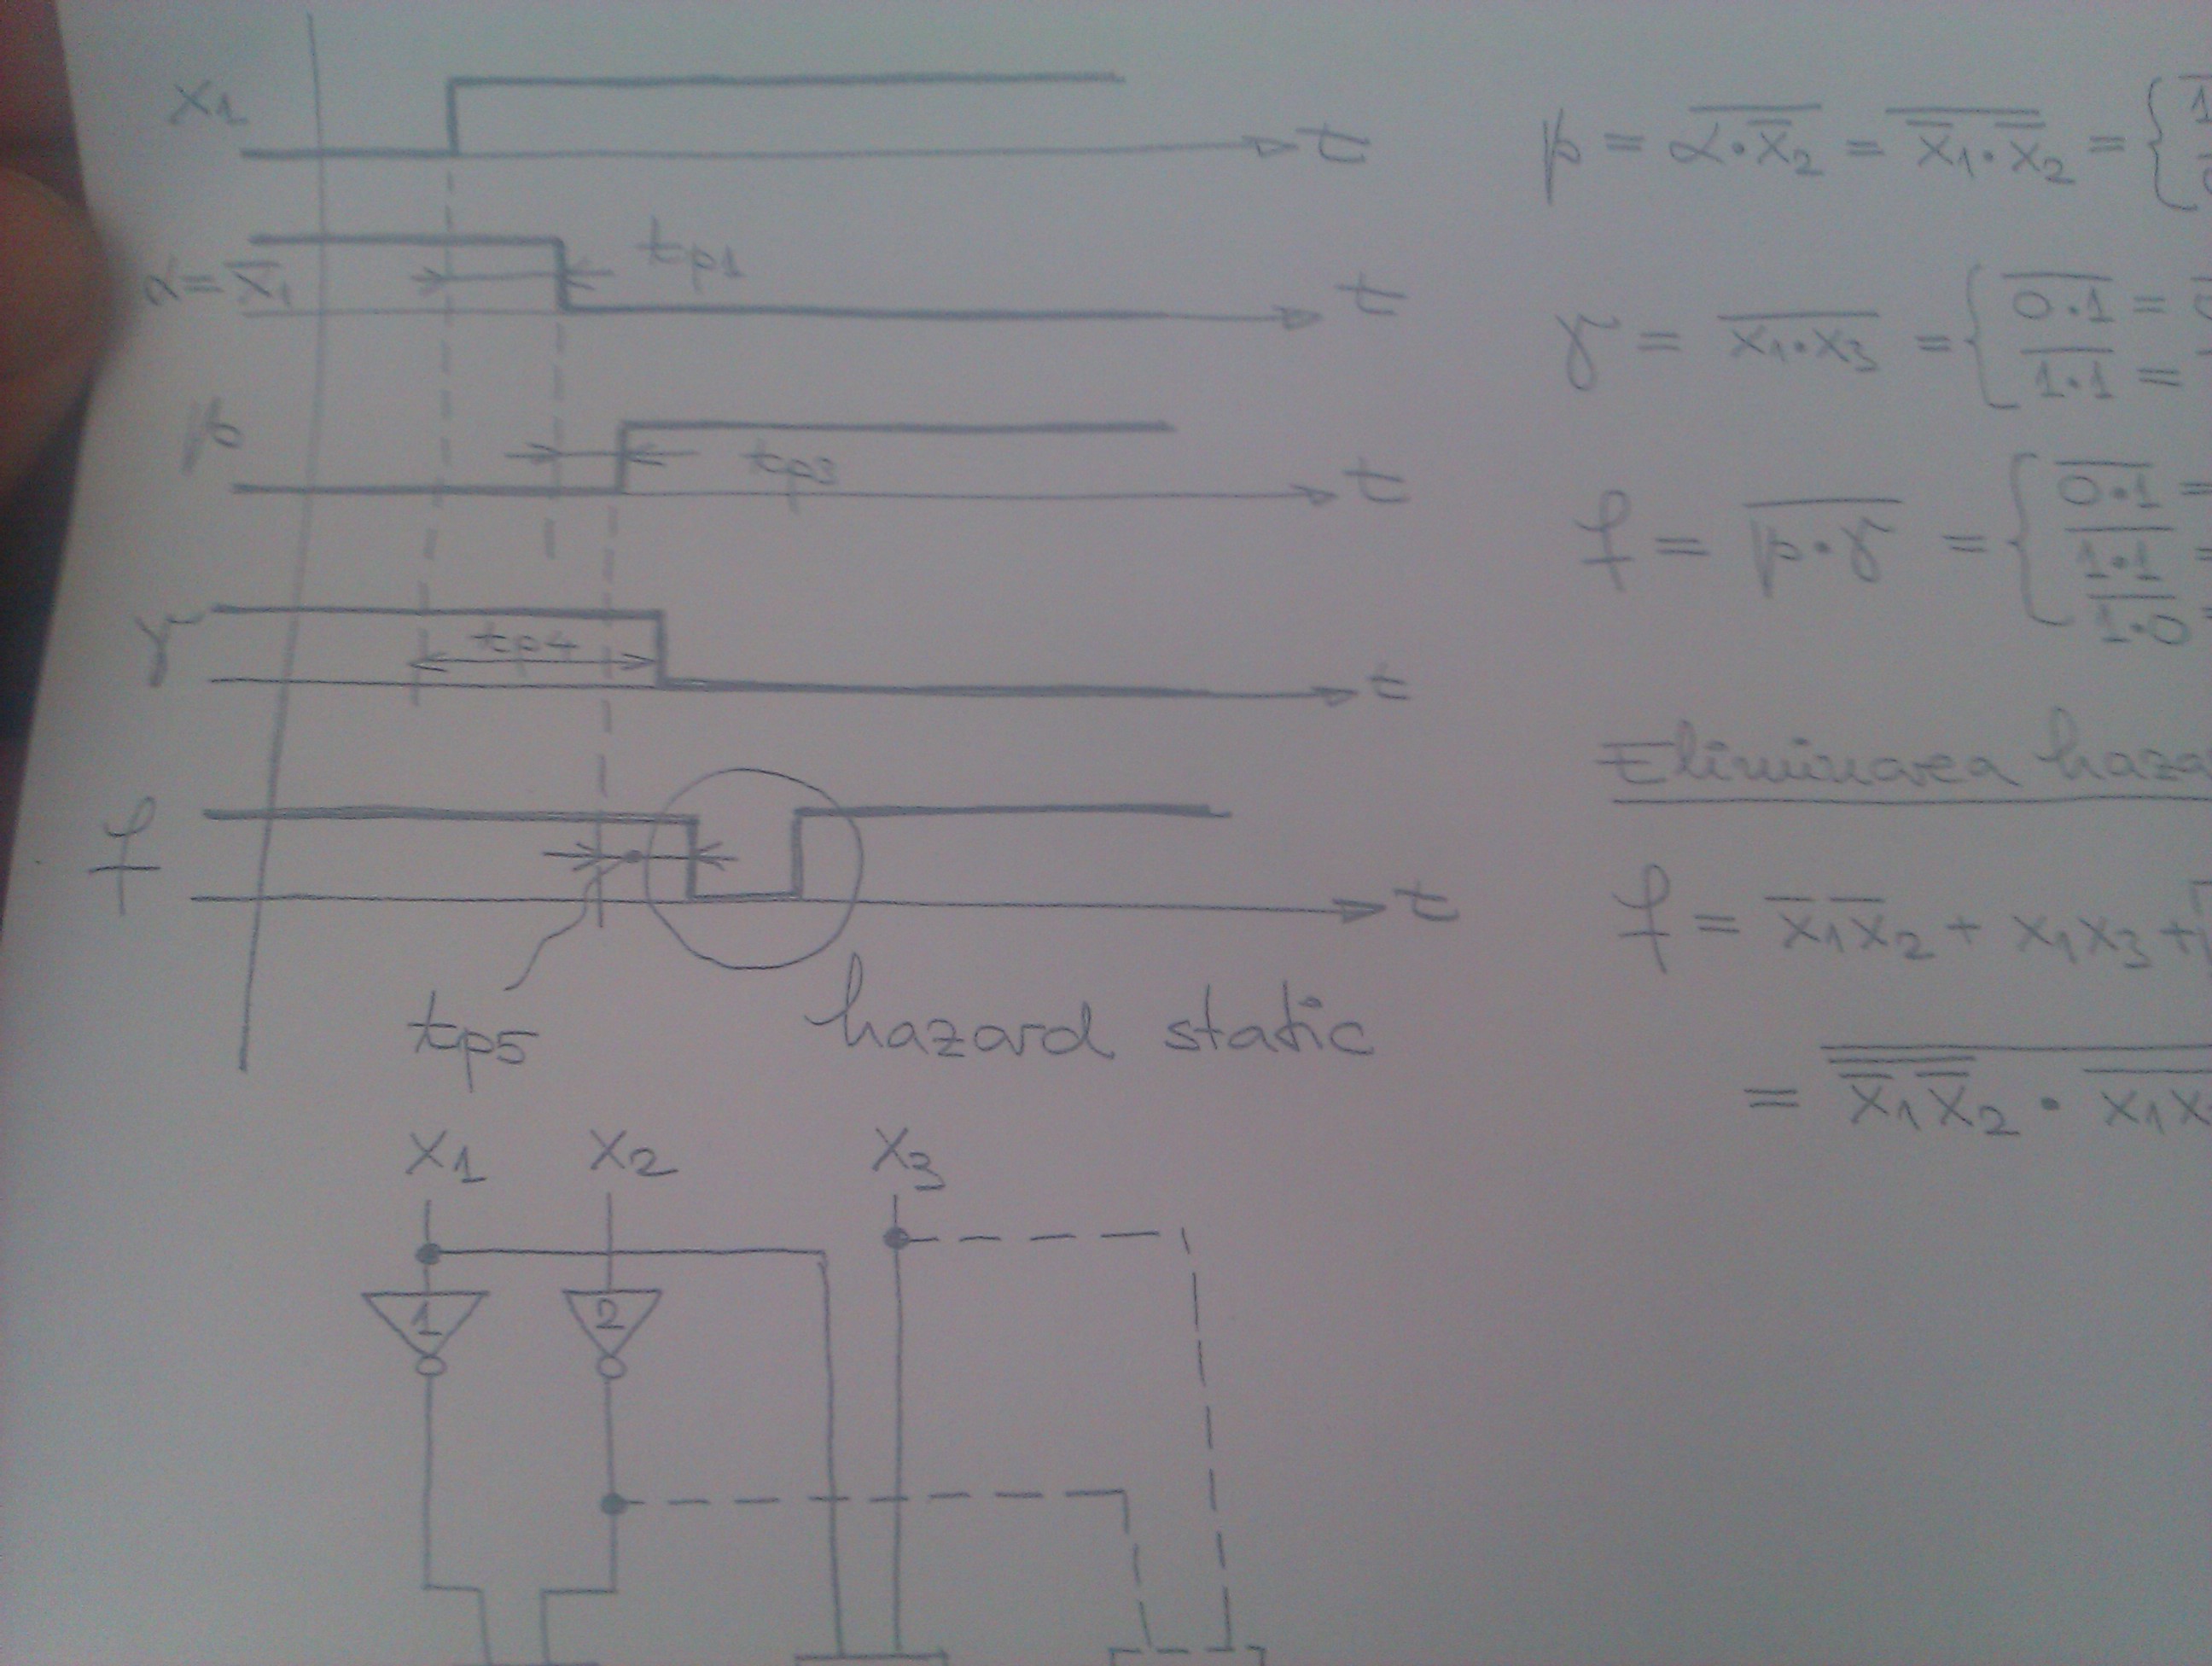 x₁
t
α = x̅₁
t_p1
t
β
t_p3
t
γ
t_p4
t
f
t
t_p5
hazard static
x₁ x₂ x₃
1 2
β = \overline{α·x̅₂} = \overline{x̅₁·x̅₂} = {
γ = \overline{x₁·x₃} = { \overline{0·1} =
\overline{1·1} =
f = \overline{β·γ} = { \overline{0·1} =
\overline{1·1} =
\overline{1·0}
Eliminarea
f = x̅₁x̅₂ + x₁x₃ +
= \overline{\overline{x̅₁x̅₂} · \overline{x₁x